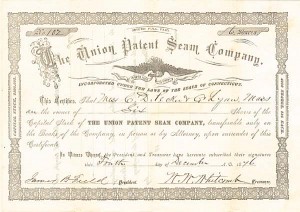 No 182
6 Shares
The Union Patent Seam Company.
INCORPORATED UNDER THE LAWS OF THE STATE OF CONNECTICUT.
This Certifies That Lynn Mass
the owner of Six Shares of the
Capital Stock of THE UNION PATENT SEAM COMPANY, transferable only on
the Books of the Company, in person or by Attorney, upon surrender of this
Certificate.
In Witness Whereof the President and Treasurer have hereunto subscribed their signatures
this Fourth day of December 1876
James H Field W. W. Whitcomb
President Treasurer